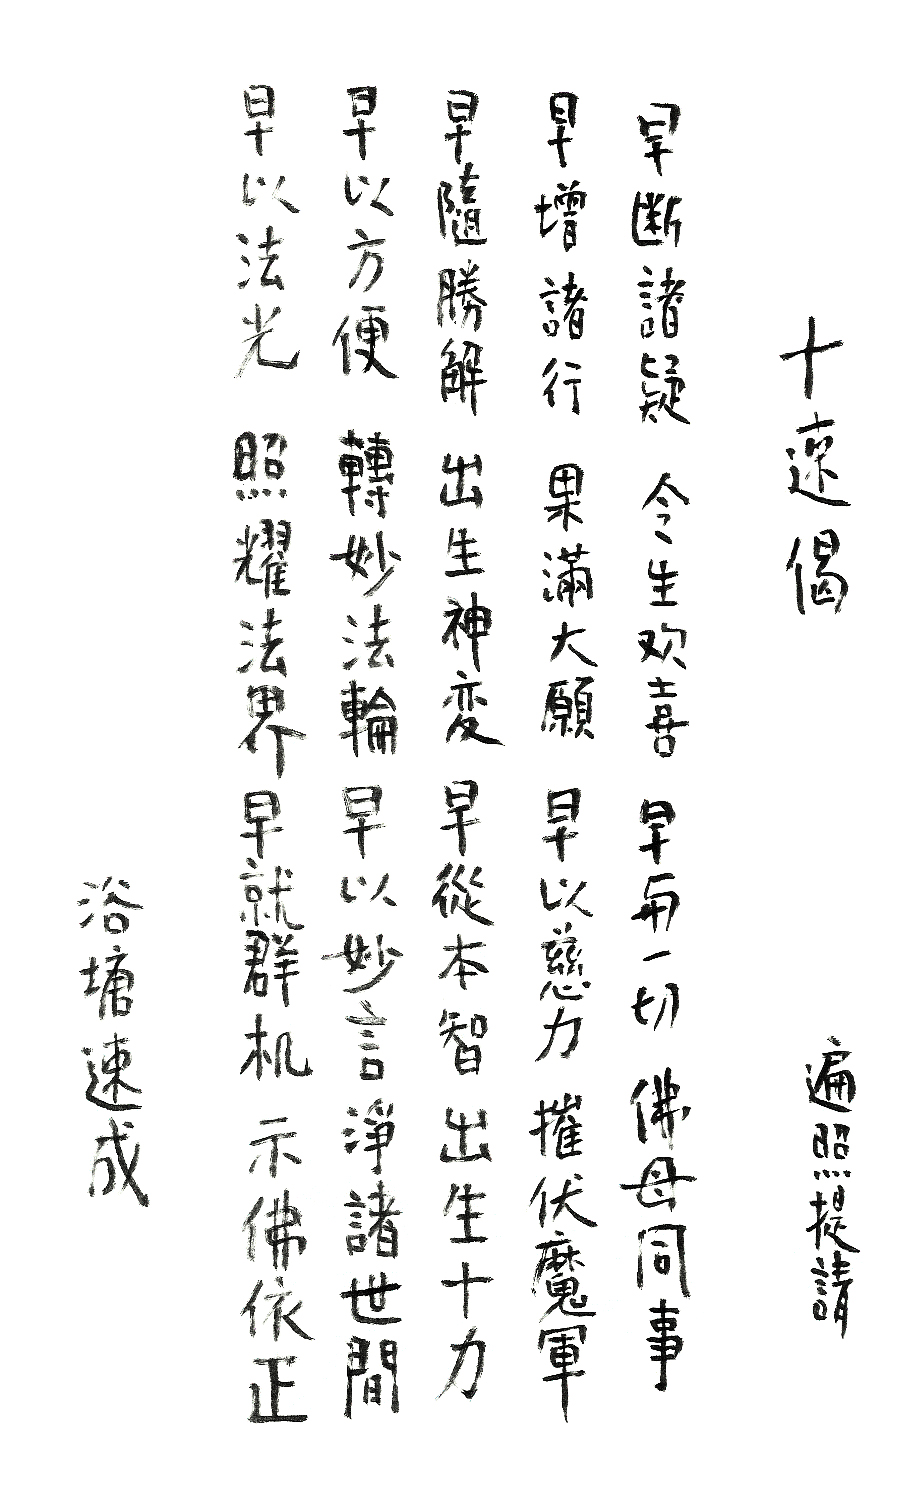 十速偈
遍照提請
早断諸疑 令生欢喜 早与一切 佛母同事
早增諸行 果滿大願 早以慈力 摧伏魔軍
早隨勝解 出生神変 早從本智 出生十力
早以方便 轉妙法輪 早以妙言 淨諸世間
早以法光 照耀法界 早就群机 示佛依正
浴塘速成